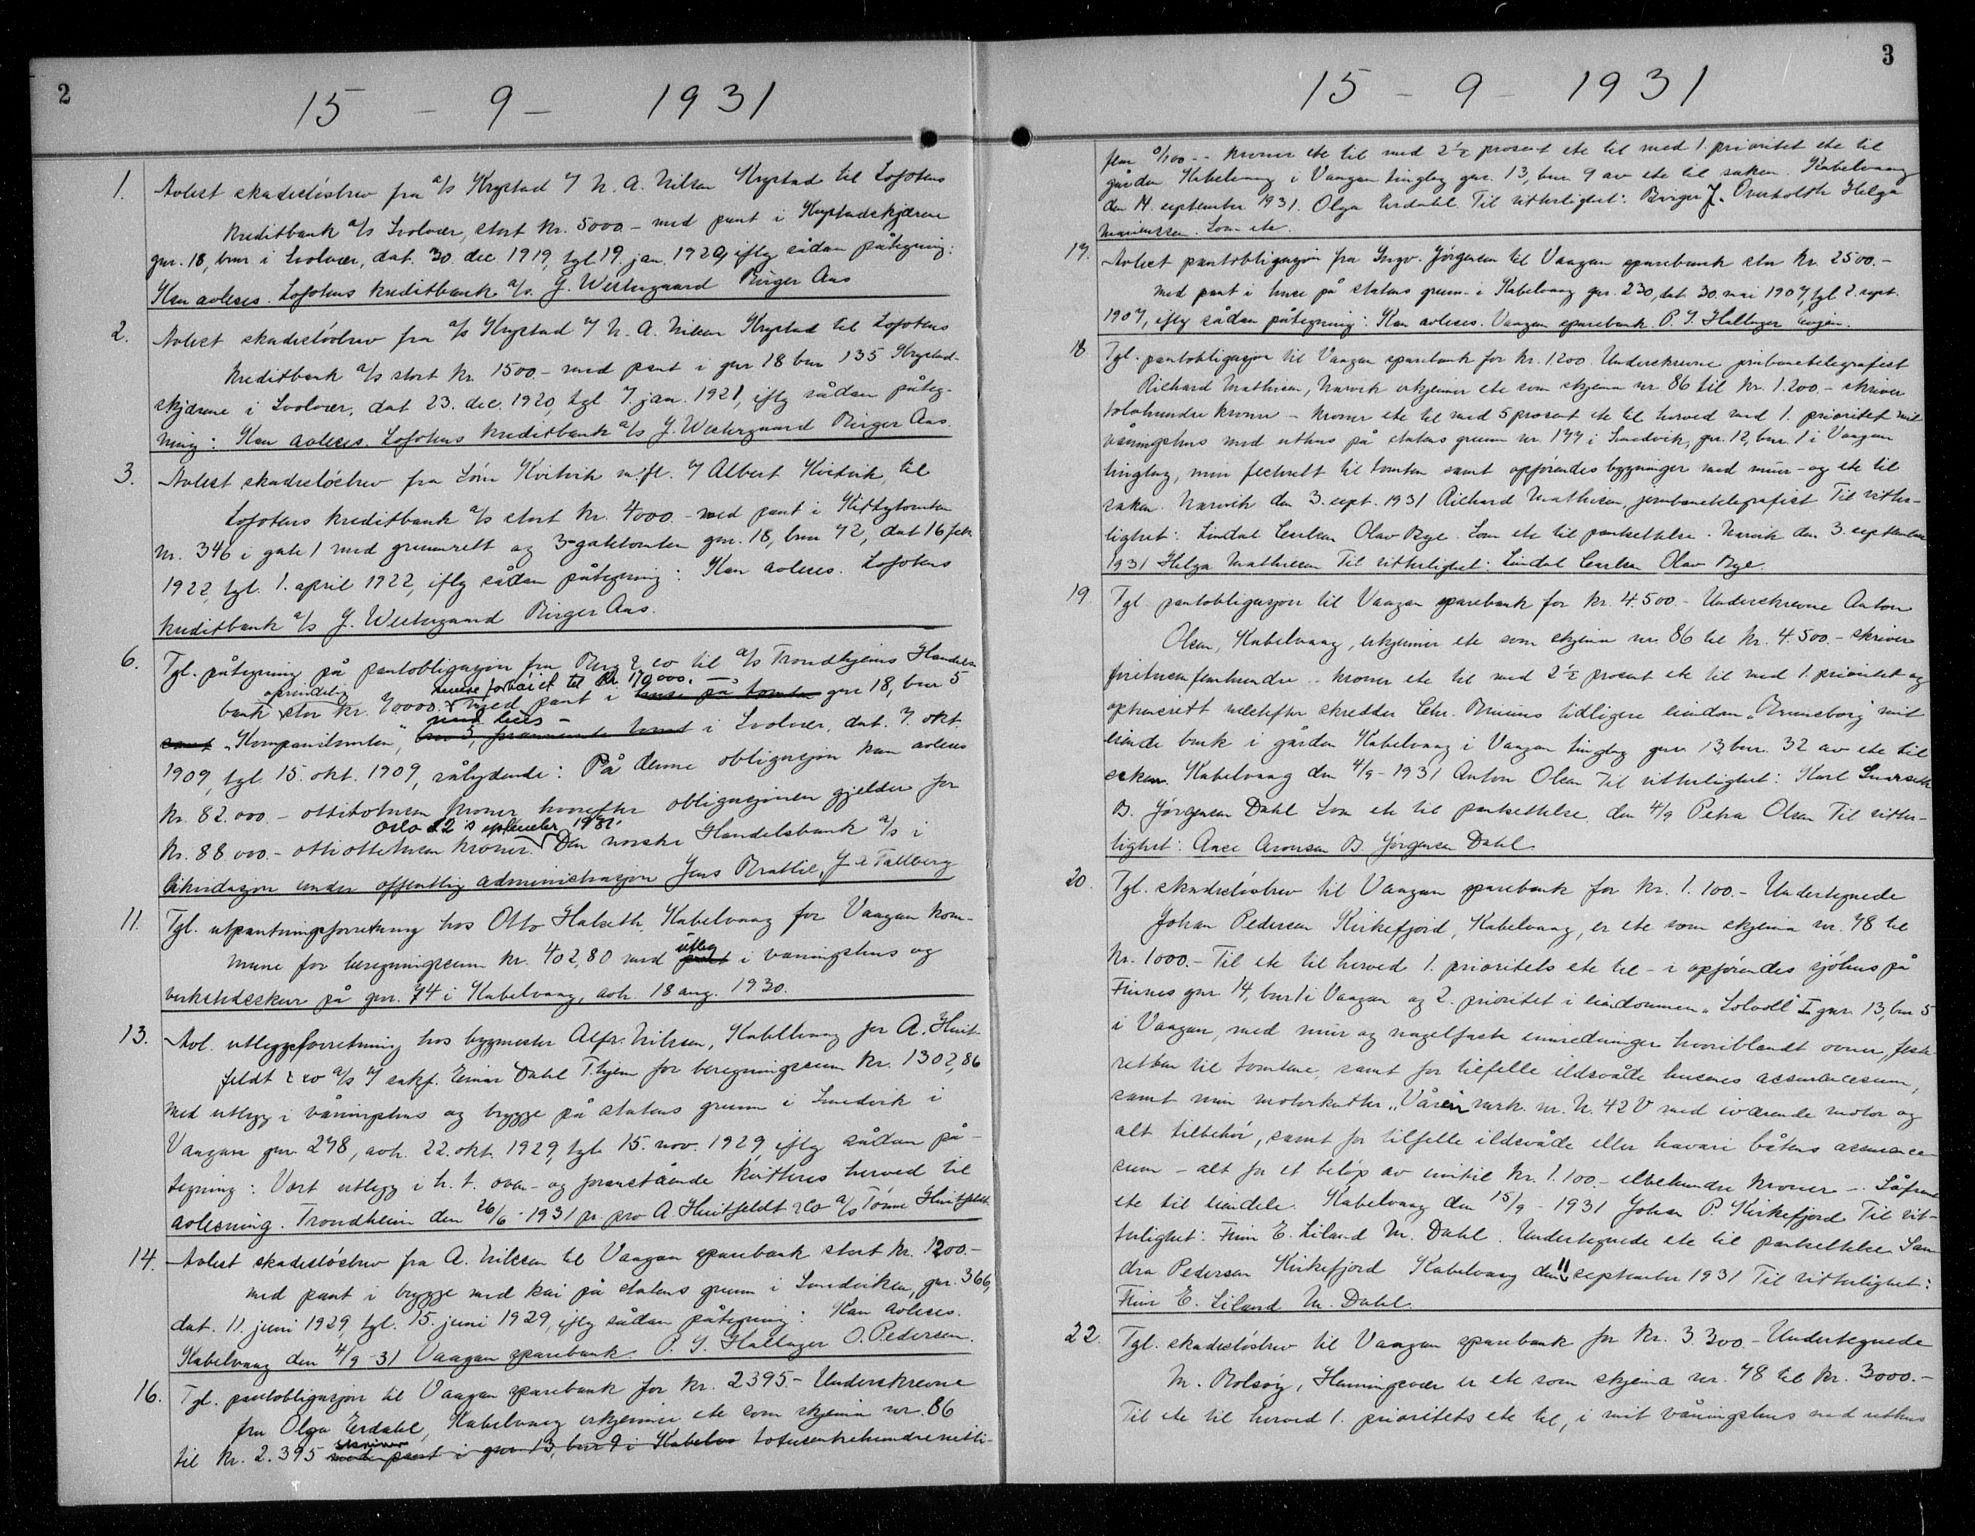 2
15 - 9 - 1931
1. Avlest skadesløsbrev fra a/s Krystad v/ N. A. Nilsen Krystad til Lofotens
kreditbank a/s Svolvær, stort kr. 5000.- med pant i Krystadskjærene
gnr. 18, bnr i Svolvær, dat. 30 dec 1919, tgl 19. jan. 1920, iflg sådan påtegning:
Kan avleses. Lofotens kreditbank a/s. J. Westergaard Birger Aas
2. Avlest skadesløsbrev fra a/s Krystad v/ N. A. Nilsen Krystad til Lofotens
kreditbank a/s stort kr. 1500.- med pant i gnr 18 bnr 135 Krystad-
skjærene i Svolvær, dat 23. dec. 1920, tgl 7. jan. 1921, iflg sådan påteg-
ning: Kan avleses. Lofotens kreditbank a/s J. Westergaard Birger Aas.
3. Avlest skadesløsbrev fra Kvitvik m/fl. v/ Albert Kvitvik, til
Lofotens kreditbank a/s stort kr. 4000.- med pant i
nr. 346 i gate 1 med grunnrett og 3-gatetomten gnr. 18, bnr 72, dat 16 feb.
1922, tgl. 1. april 1922, iflg sådan påtegning: Kan avleses. Lofotens
kreditbank a/s J. Westergaard Birger Aas.
6. Tgl. påtegning på pantobligasjon fra Berg & co til a/s Trondhjems Handels
oprindelig senere forhøiet til kr 170000.-
bank stor kr. 70000.- med pant i huse på tomten gnr 18, bnr 5
med hus -
samt "Kompanitomten", i Svolvær, dat. 7. okt.
1909, tgl 15. okt. 1909, sålydende: På denne obligasjon kan avleses
kr. 82.000.- ottitotusen kroner hvorefter obligasjonen gjelder for
Oslo 22's september 1931.
kr. 88 000.- ottiottetusen kroner. Den norske Handelsbank a/s i
likvidasjon under offentlig administrasjon Jens Bratlie, J. Tallberg
11. Tgl. utpantningsforretning hos Otto Halseth, Kabelvaag for Vaagan kom-
utleg
mune for beregningssum kr. 402,80 med pant i våningshus og
verkstedsskur på gnr. 74 i Kabelvaag, avh. 18 aug. 1930.
13. Avl. utleggsforretning hos bygmester Alfr. Nilsen, Kabelvaag for A. Huit-
feldt & co a/s v/ sakf. Einar Dahl T.hjem for beregningssum kr. 1302,86
med utlegg i våningshus og brygge på statens grunn i Smedvik i
Vaagan gnr 278, avh. 22. okt. 1929, tgl 15. nov. 1929, iflg sådan på-
tegning: Vort utlegg i h. t. oven- og foranstående kvitteres herved til
avlesning. Trondheim den 26/6 - 1931 pr. pro A. Huitfeldt & Co a/s Tønne Huitfeldt
14. Avlest skadesløsbrev fra A. Nilsen til Vaagan sparebank stort kr. 1200.-
med pant i brygge med kai på statens grunn i Smedviken, gnr. 366,
dat. 11. juni 1929, tgl. 15. juni 1929, iflg sådan påtegning: Kan avleses.
Kabelvaag den 4/9-31 Vaagan sparebank. P. J. Hallager O. Pedersen.
16. Tgl. pantobligasjon til Vaagan sparebank for kr. 2395.- Underskrevne
fru Olga Erdahl, Kabelvaag erkjenner etc som skjema nr. 86
skriver
til kr. 2.395 med pant i gnr 13, bnr 9 i Kabelva totusentrehundrenitti-
3
15 - 9 - 1931
fem 0/100 -- kroner etc til med 2½ prosent etc til med 1. prioritet etc til
gården Kabelvaag i Vaagan tinglag gnr. 13, bnr 9 av etc til saken. Kabelvaag
den 14. september 1931. Olga Erdahl Til vitterlighet: Birger J. Overholth Helga
Mariussen. Som etc.
17. Avlest pantobligasjon fra Ingv. Jørgensen til Vaagan sparebank stor kr. 2500.-
med pant i huse på statens grunn i Kabelvaag gnr. 230, dat 30. mai 1907, tgl 2. sept.
1907, iflg sådan påtegning: Kan avleses. Vaagan sparebank. P. J. Hallager
18 Tgl. pantobligasjon til Vaagan sparebank for kr. 1200 Underskrevne jernbanetelegrafist
Richard Mathisen, Narvik erkjenner etc som skjema nr 86 til kr. 1.200.- skriver
tolvhundre kroner - kroner etc til med 5 prosent etc til herved med 1. prioritet mit
våningshus med uthus på statens grunn nr. 177 i Smedvik, gnr. 12, bnr. 1 i Vaagan
tinglag, min festerett til tomten samt opførendes bygninger med mur- og etc til
saken. Narvik den 3. sept. 1931 Richard Mathisen, jernbanetelegrafist Til vitter-
lighet: Lindal Carlsen Olav Bye. Som etc til panksettelse. Narvik den 3. september
1931 Helga Mathisen Til vitterlighet: Lindal Carlsen Olav Bye.
19 Tgl. pantobligasjon til Vaagan sparebank for kr. 4.500.- Underskrevne Anton
Olsen, Kabelvaag, erkjenner etc som skjema nr. 86 til kr. 4.500.- skriver
firetusenfemhundre - kroner etc til med 2½ prosent etc til med 1. prioritet og
optrinsrett næstefter skredder Chr. Bruuns tidligere eiendom "Brunsborg" mit
eiende bruk i gården Kabelvaag i Vaagan tinglag gnr 13, bnr. 32 av etc til
saken. Kabelvaag den 4/9-1931 Anton Olsen Til vitterlighet: Karl
B. Jørgensen Dahl Som etc til panksettelse den 4/9 Petra Olsen Til vitter-
lighet: Aase Aronsen B. Jørgensen Dahl
20. Tgl. skadesløsbrev til Vaagan sparebank for kr. 1.100.- Undertegnede
Johan Pedersen Kirkefjord, Kabelvaag, er etc som skjema nr. 78 til
kr. 1000.- Til etc til herved 1. prioritets etc til - i opførendes sjøhus på
Finnes gnr 14, bnr 1 i Vaagan og 2. prioritet i eiendommen "Solvoll" I gnr. 13, bnr 5
i Vaagan, med mur og nagelfaste innredninger hvoriblandt ovner, feste-
retten til tomtene, samt for tilfelle ildsvåde husenes assuransesum,
samt min motorkutter "Våren" merk. nr. N. 42 V med iværende motor og
alt tilbehør, samt for tilfelle ildsvåde eller havari båtens assuranse
sum - alt for et beløp av inntil kr. 1.100.- ellevehundre kroner -. Såfremt
etc til eiendele. Kabelvaag den 15/9 - 1931 Johan P. Kirkefjord Til vit-
terlighet: Finn E. Liland M. Dahl. Undertegnede etc til panksettelse San-
dra Pedersen Kirkefjord Kabelvaag den 11 september 1931 Til vitterlighet:
Finn E. Liland M. Dahl.
22. Tgl. skadesløsbrev til Vaagan sparebank for kr. 3300.- Undertegnede
M. Bolsøy, Henningsvær er etc som skjema nr. 78 til kr. 3000.-
Til etc til herved 1. prioritets etc til, i mit våningshus med uthus